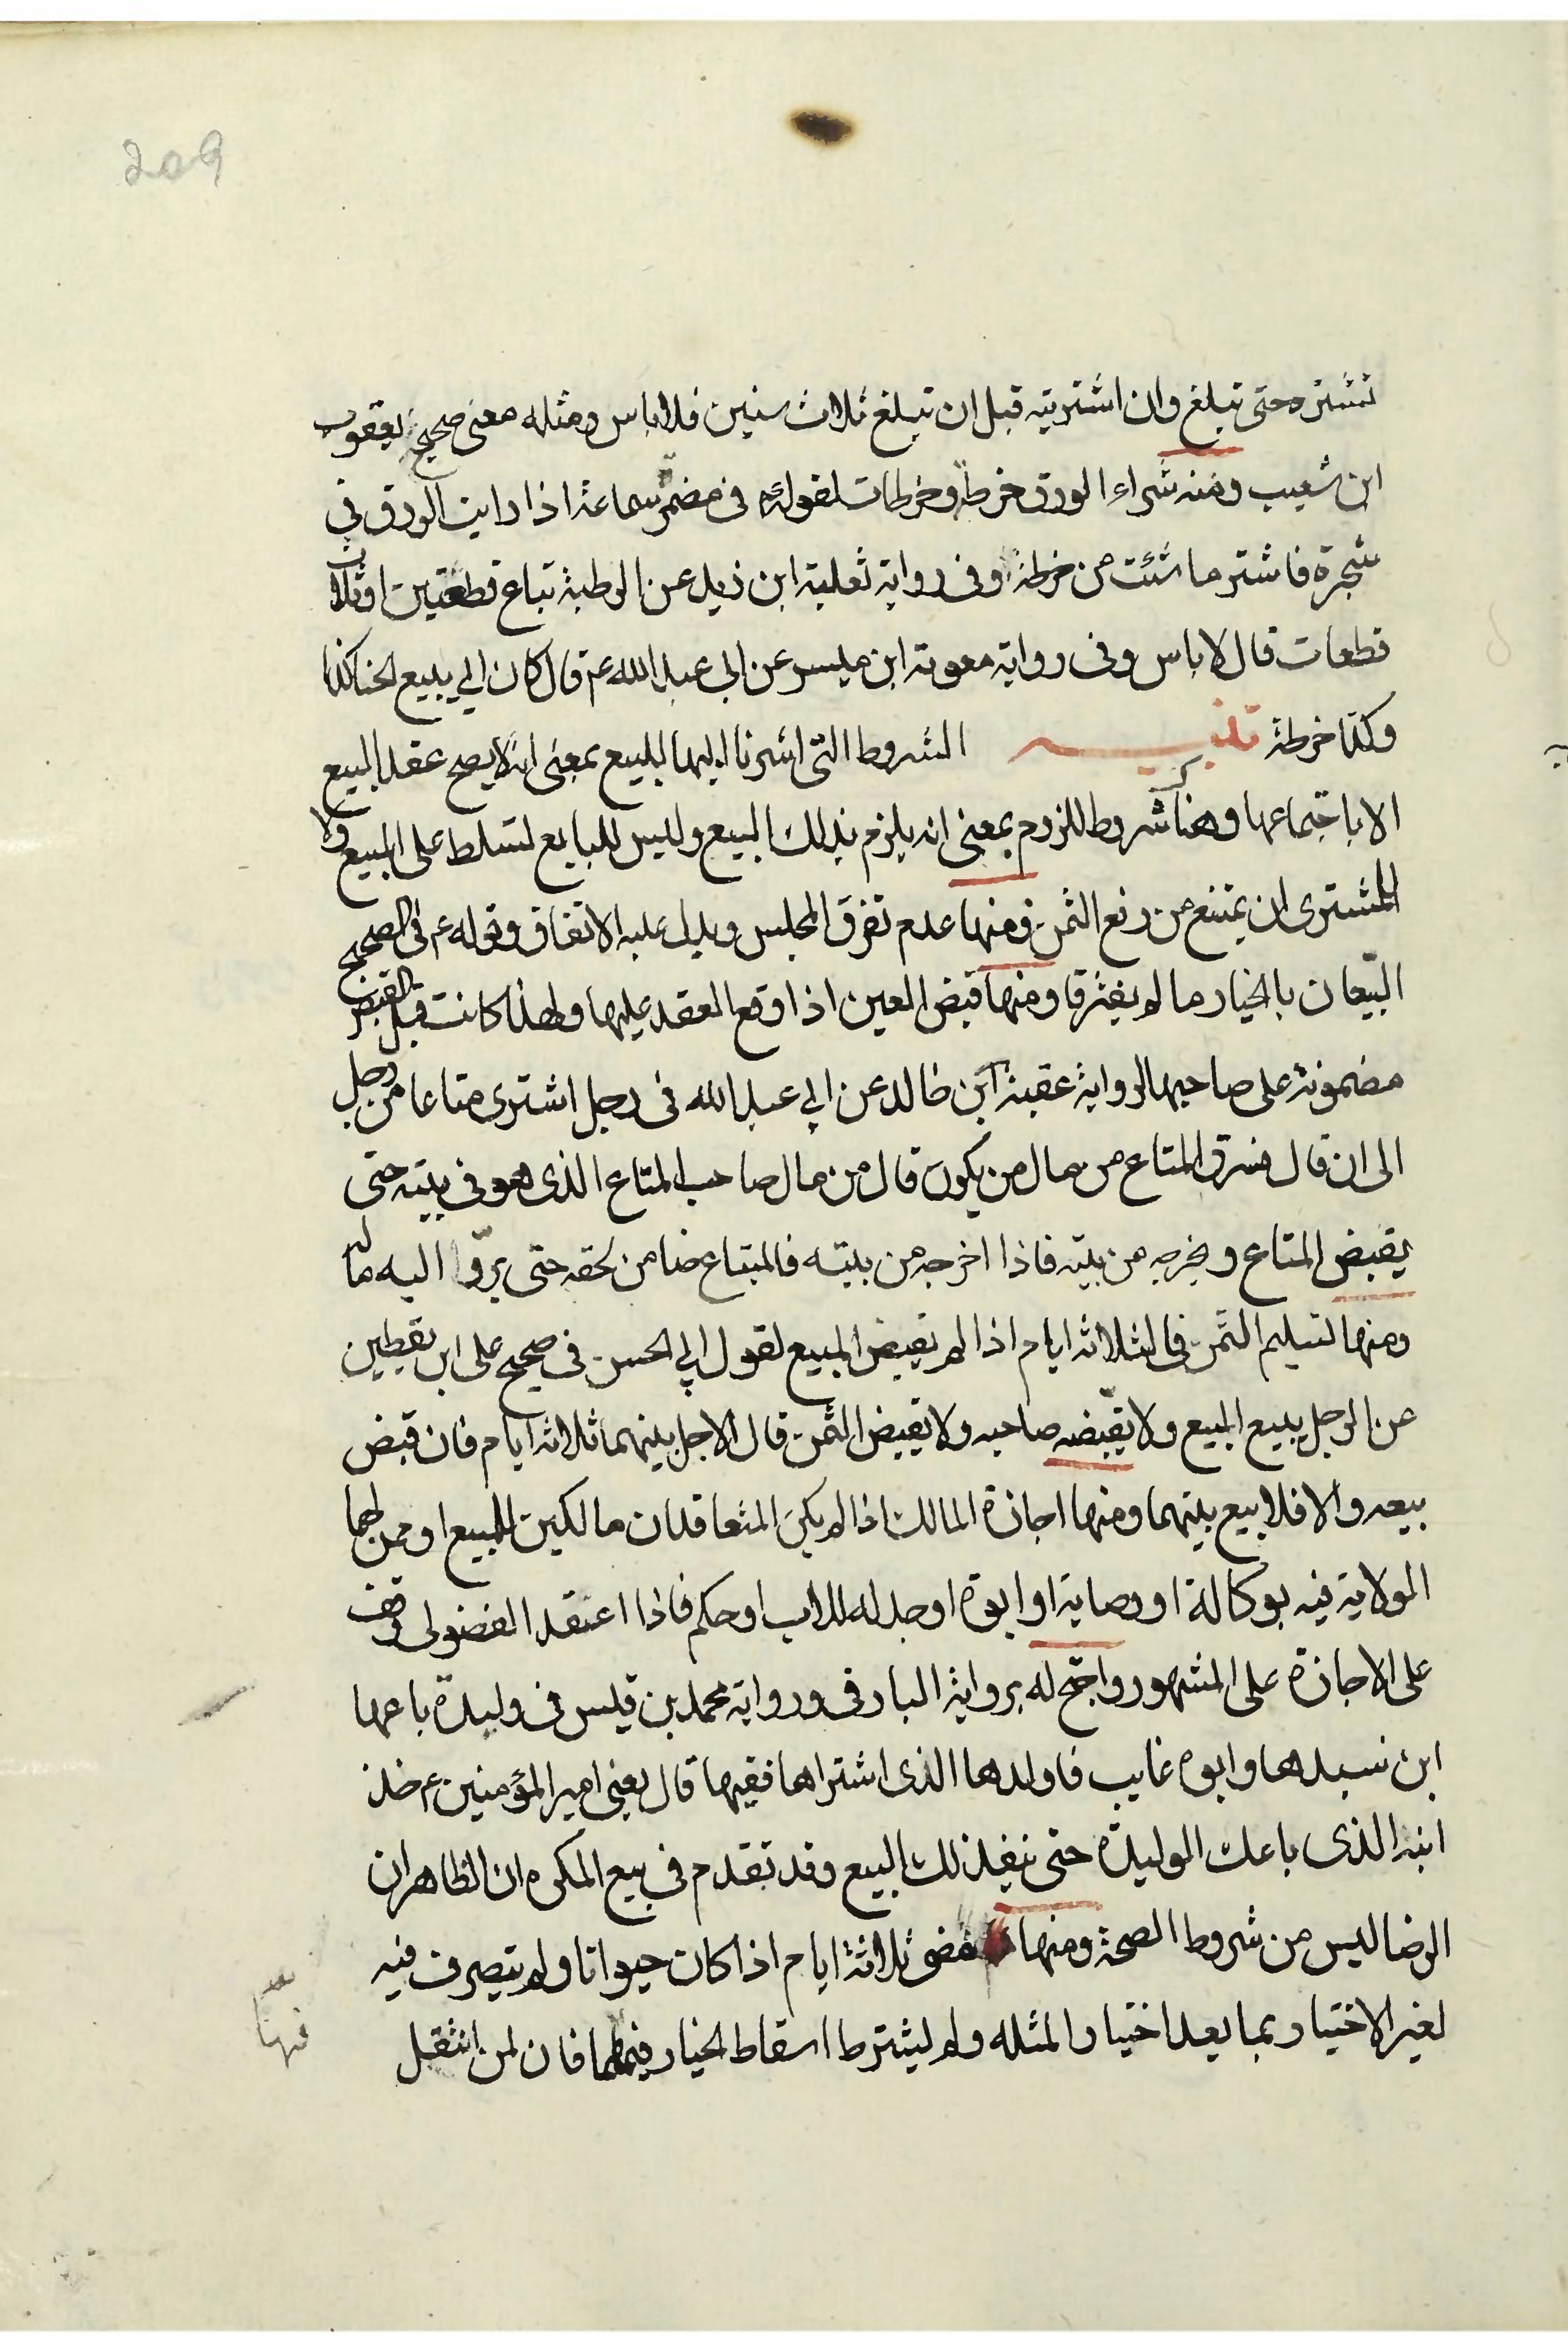 209
تشتره حتى تبلغ وان اشتريته قبل ان تبلغ ثلاث سنين فلا باس ومثله معنى صحيح يعقوب
ابن شعيب ومنه شراء الورق خرطة وخرطات لقوله ع في مضمر سماعة اذا رايت الورق في
شجرة فاشتر ما شئت من خرطة وفى رواية ثعلبة ابن زيد عن الرطبة تباع قطعتين او ثلاث
قطعات قال لا باس وفى رواية معوية ابن ميسر عن ابي عبد الله ع قال كان ابي يبيع الحنا كذا
وكذا خرطة تنبيه الشروط التى اشرنا اليها للبيع بمعنى انه لا يصح عقد البيع
الا باجتماعها وهناك شروط للزوم بمعنى انه يلزم بذلك البيع وليس للبايع تسلط على المبيع ولا
للمشترى ان يمتنع من دفع الثمن فمنها عدم تفرق المجلس ويدل عليه الاتفاق وقوله ع في الصحيح
البيّعان بالخيار ما لم يفترقا ومنها قبض العين اذا وقع العقد عليها ولهذا كانت قبل القبض
مضمونة على صاحبها لرواية عقبة ابن خالد عن ابي عبد الله فى رجل اشترى متاعا من رجل
الى ان قال فسرق المتاع من مال من يكون قال من مال صاحب المتاع الذى هو فى بيته حتى
يقبض المتاع ويخرجه من بيته فاذا اخرجه من بيته فالمبتاع ضامن لحقه حتى يردّ اليه ماله
ومنها تسليم الثمن فى الثلاثه ايام اذا لم يقبض المبيع لقول ابي الحسن في صحيح على ابن يقطين
عن الرجل يبيع البيع ولا يقبّضه صاحبه ولا يقبض الثمن قال الاجل بينهما ثلاثه ايام فان قبض
بيعه والا فلا بيع بينهما ومنها اجازة المالك اذا لم يكن المتعاقدان مالكين للمبيع او من لهما
الولاية فيه بوكالة او وصاية او ابوة او جد له للاب او حكم فاذا اعتقد الفضولى وقف
على الاجازة على المشهور واحتج له برواية البارقى ورواية محمد بن قيس فى وليدة باعها
ابن سيدها وابوه غايب فاولدها الذى اشتراها فقيها قال يعنى امير المؤمنين ع خذ
ابنه الذى باعك الوليدة حتى ينفذ لك البيع وقد تقدم فى بيع المكره ان الظاهر ان
الرضا ليس من شروط الصحة ومنها مضى ثلاثة ايام اذا كان حيوانا ولم يتصرف فيه
لغير الاختيار بما يعد اختيارا لمثله ولم يشترط اسقاط الخيار فيهما فان لمن انتقل